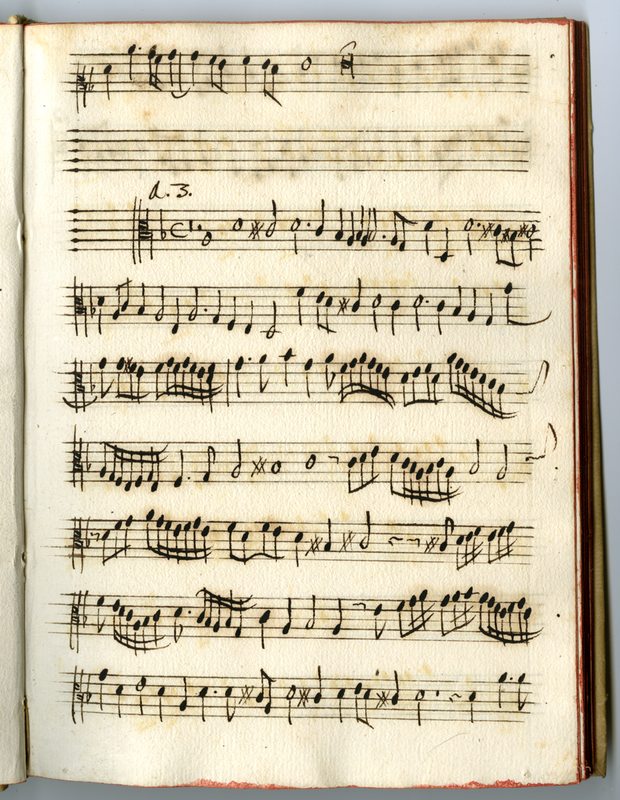 a. 3.